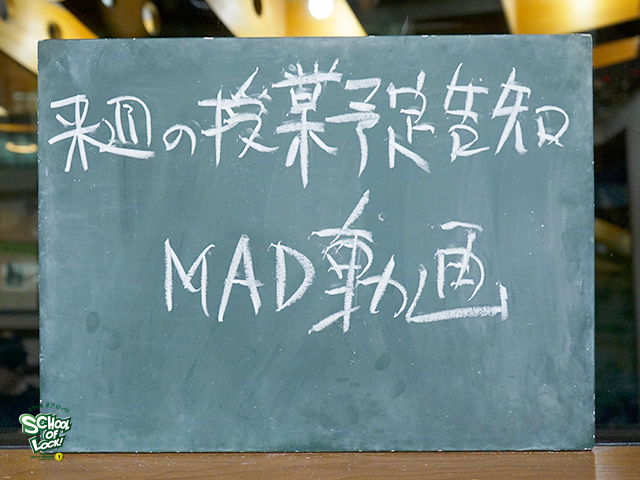 来週の授業予定告知
MAD動画
SCHOOL
OF
LOCK!